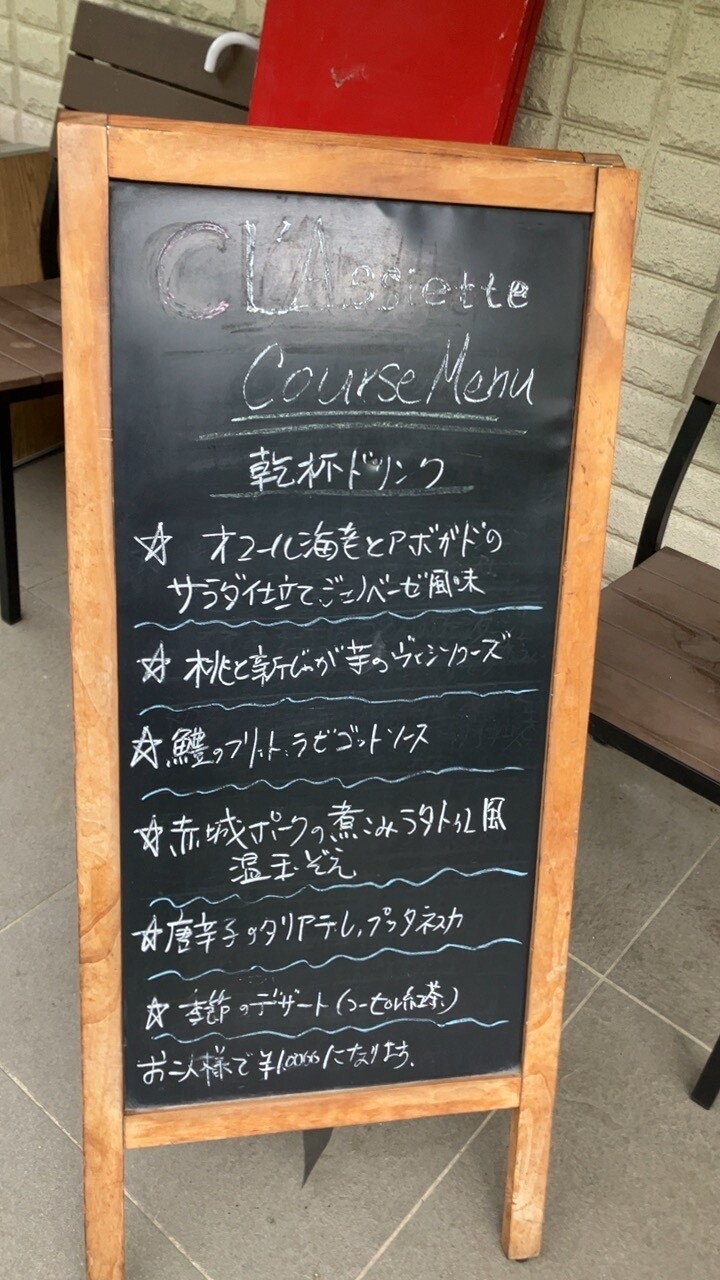 CL'Assiette
Course Menu
乾杯ドリンク
☆ オマール海老とアボガドの
サラダ仕立てジェノベーゼ風味
☆ 桃と新じゃが芋のヴィシソワーズ
☆ 鱧のフリット、ラビゴットソース
☆ 赤城ポークの煮こみラタトゥユ風
温玉ぞえ
☆ 唐辛子のタリアテレ、プッタネスカ
☆ 季節のデザート(コーヒor紅茶)
お二人様で になります。